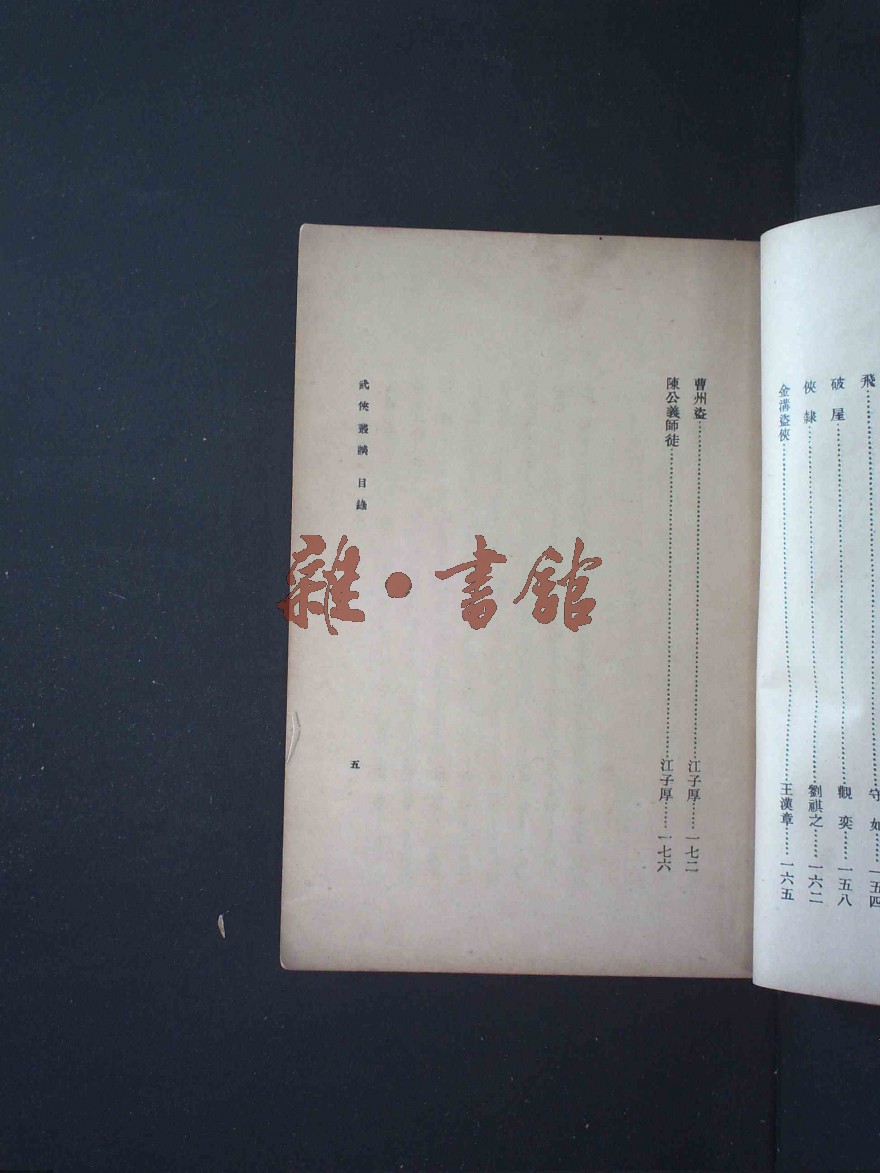 飛……守如……一五四
破屋……觀奕……一五八
俠隸……劉祺之……一六二
金溝盜俠……王漢章……一六五
曹州盜……江子厚……一七二
陳公義師徒……江子厚……一七六
武俠叢談 目錄
五
雜·書館